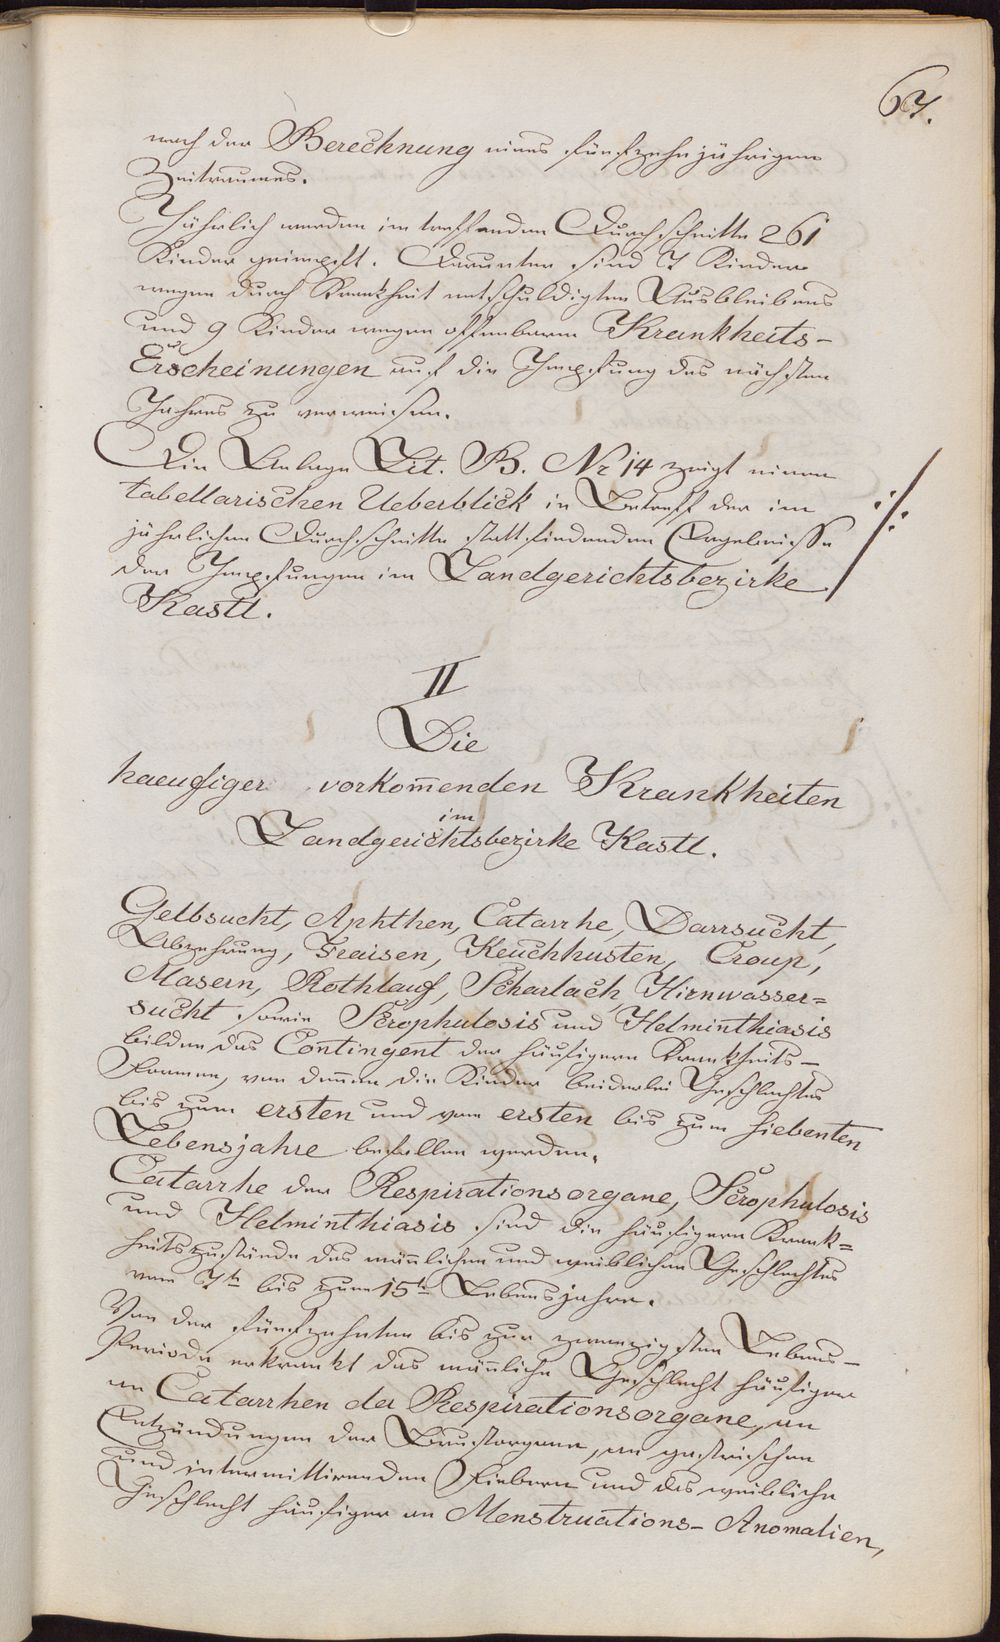 67.
nach der Berechnung eines fünfzehnjährigen
Zeitraumes.
Jährlich werden im treffenden Durchschnitte 261
Kinder geimpft. Darunter sind 7 Kinder
wegen durch Krankheit entschuldigten Ausbleibens
und 9 Kinder wegen offenbaren Krankheits-
Erscheinungen auf die Impfung des nächsten
Jahres zu verweisen.
Die Anlage Lit. B. Nr 14 zeigt einen
tabellarischen Ueberblick in Betreff der im
jährlichen Durchschnitte stattfindenden Ergebnisse
der Impfungen im Landgerichtsbezirke
Kastl.
II
Die
haeufiger vorkom̅enden Krankheiten
im
Landgerichtsbezirke Kastl.
Gelbsucht, Aphthen, Catarrhe, Darrsucht,
Abzehrung, Fraisen, Keuchhusten, Croup,
Masern, Rothlauf, Scharlach, Hirnwasser=
sucht sowie Scrophulosis und Helminthiasis
bilden das Contingent der häufigern Krankheits-
Formen, von denen die Kinder beiderlei Geschlechtes
bis zum ersten und vom ersten bis zum siebenten
Lebensjahre befallen werden.
Catarrhe der Respirationsorgane, Scrophulosis
und Helminthiasis sind die häufigern Krank=
heitszustände des män̅lichen und weiblichen Geschlechtes
vom 7t bis zum 15t Lebensjahre.
Von der fünfzehnten bis zur zwanzigsten Lebens-
Periode erkrankt das män̅liche Geschlecht häufiger
an Catarrhen der Respirationsorgane, an
Entzündungen der Brustorgane, an gastrischen
und intermittirenden Fiebern und das weibliche
Geschlecht häufiger an Menstruations-Anomalien,